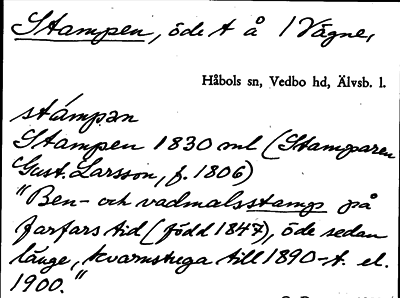 Stampen, öde t å 1 Vågne,
Håbols sn, Vedbo hd, Älvsb. l.
stámpən
Stampen 1830 ml (Stamparen
Gust. Larsson, f. 1806)
"Ben- och vadmalsstamp på
farfars tid (född 1847), öde sedan
länge, kvarnstuga till 1890-t. el.
1900."